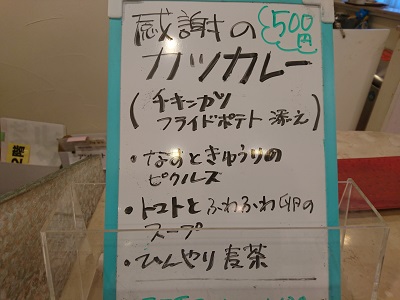 感謝の
500円
カツカレー
(チキンカツ
フライドポテト 添え)
・なすときゅうりの
ピクルス
・トマトとふわふわ卵の
スープ
・ひんやり麦茶